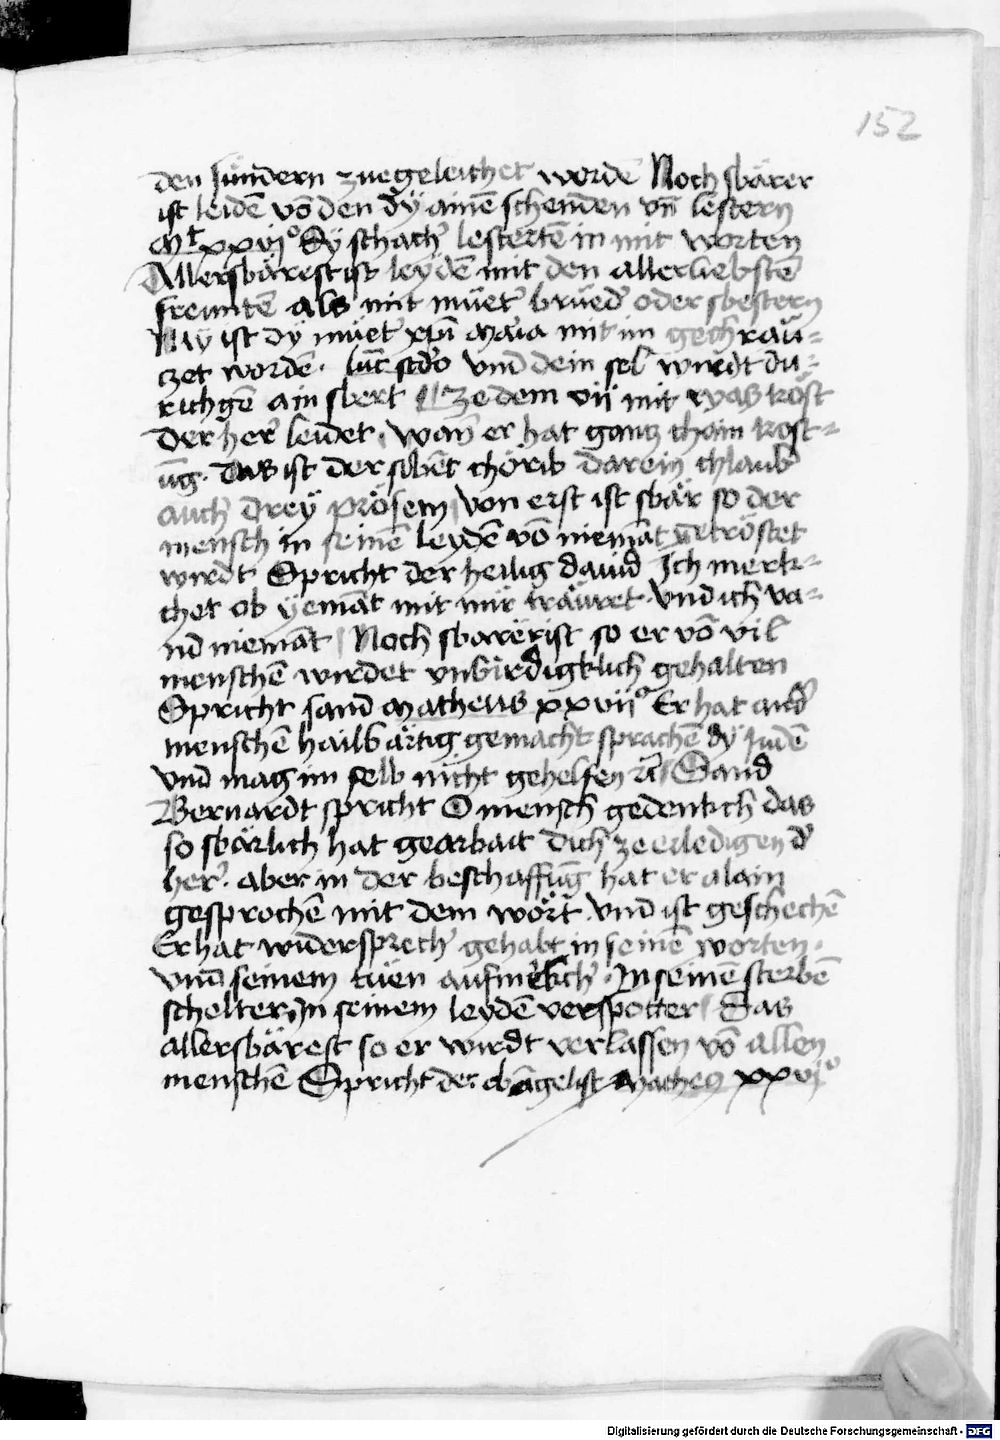 152
den sündern zuegeleichet wordē Noch sbärer
ist leidē vō den dy ainē schenden vn̄ lestern
Mt xxvijº Dy schachʼ lestertē in mit worten
Allersbärest ist leydē mit den allerliebstē
freuntē als mit müetʼ brüedʼ oder sbestern
Ny ist dy müetʼ xp̄i maria mit im gechräu-
czet worden. luc̄ scdo vnd dein sel wirdt du-
richgen ain sbert Ze dem vii mit was tröst
Der herʼ leidet. wan er hat gancz chain trost-
ūg. Das ist der sibēt chörib darein chlaub
auch drey prösem Von erst ist sbär so der
mensch in seinē leydē vō niemāt getröstet
wirdt Spricht der heilig dauid Ich merk-
chet ob yemāt mit mir träwret. Vnd ich va-
nd niemāt Noch sbarer ist so er vō vil
menschē wirdet vnbirdigklich gehalten
Spricht sand Matheus xxviiº Er hat andʼ
menschē hailbärtig gemacht sprachē dy Judē
vnd mag im selb nicht gehelfen rc̄ Sand
Bernardt spricht O mensch gedenkch das
so sbärlich hat gearbait dich ze erledigen dʼ
herʼ. aber in der beschaffūg hat er alain
gesprochē mit dem wört Vnd ist geschechē
Er hat widersprechʼ gehabt in seinē worten.
vnd seinem tüen aufmerkchʼ. In seinē sterbē
schelter. In seinem leydē verspotter Das
allersbärest so er wirdt verlassen vō allen
menschē Spricht der ebāgelist Matheus xxvijº
Digitalisierung gefördert durch die Deutsche Forschungsgemeinschaft - DFG